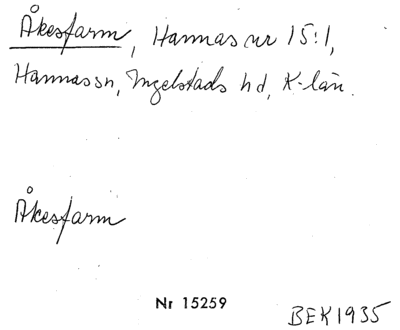 Åkesfarm, Hannas nr 15:1,
Hannas sn, Ingelstads hd, K-län.
Åkesfarm
Nr 15259
BEK 1935